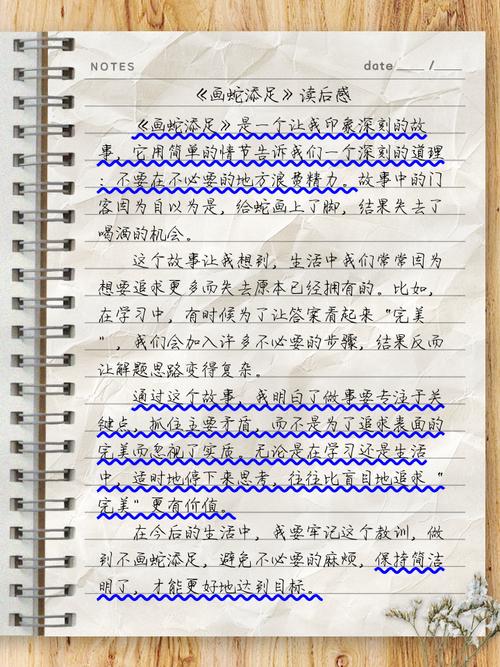 NOTES date ____ / ___
《画蛇添足》读后感
《画蛇添足》是一个让我印象深刻的故
事，它用简单的情节告诉我们一个深刻的道理
：不要在不必要的地方浪费精力。故事中的门
客因为自以为是，给蛇画上了脚，结果失去了
喝酒的机会。
这个故事让我想到，生活中我们常常因为
想要追求更多而失去原本已经拥有的。比如，
在学习中，有时候为了让答案看起来“完美
”，我们会加入许多不必要的步骤，结果反而
让解题思路变得复杂。
通过这个故事，我明白了做事要专注于关
键点，抓住主要矛盾，而不是为了追求表面的
完美而忽视了实质。无论是在学习还是生活
中，适时地停下来思考，往往比盲目地追求“
完美”更有价值。
在今后的生活中，我要牢记这个教训，做
到不画蛇添足，避免不必要的麻烦，保持简洁
明了，才能更好地达到目标。